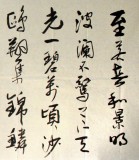 至若春和景明
波瀾不驚上下天
光一碧萬頃沙
鷗翔集錦鱗